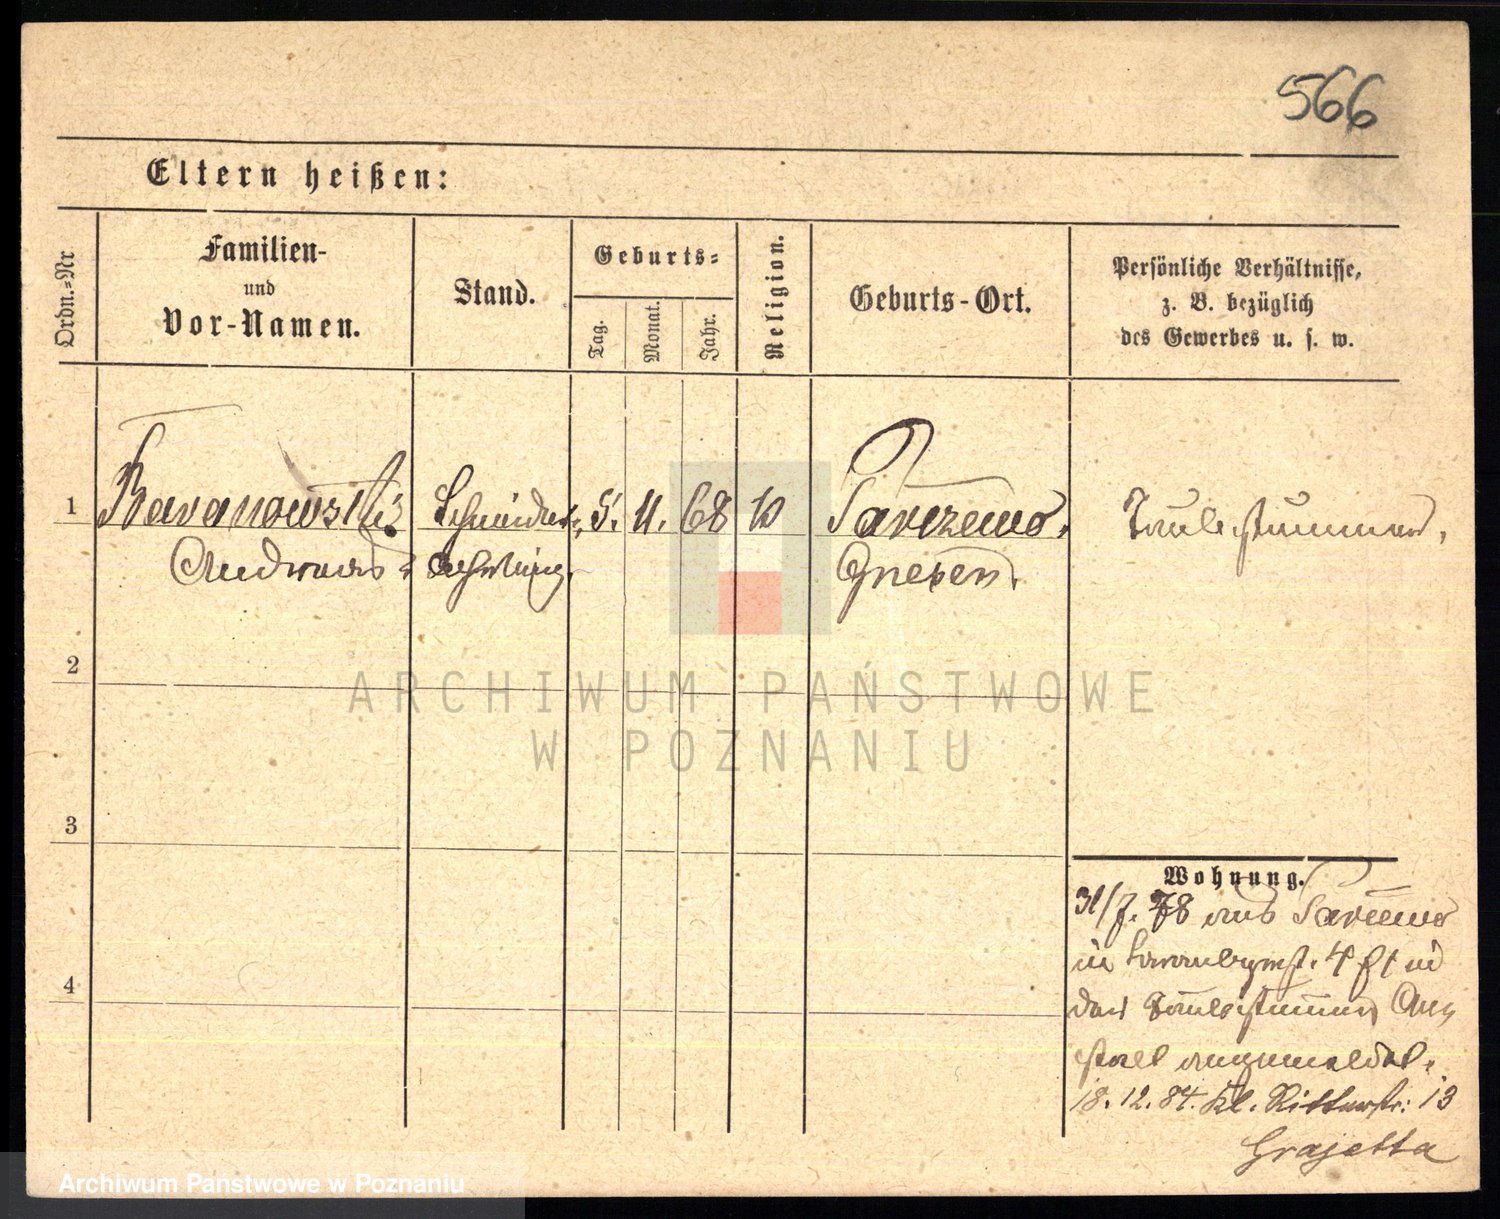 566
Eltern heißen:
Ordn.-Nr
Familien-
und
Vor-Namen.
Stand.
Geburts-
Tag.
Monat.
Jahr.
Religion.
Geburts-Ort.
Persönliche Verhältnisse,
z. B. bezüglich
des Gewerbes u. s. w.
1
Baranowski
Schneider
5. 11. 68
Taubstummer,
Andreas
Lehrling.
Gnesen.
2
ARCHIWUM PAŃSTWOWE
W POZNANIU
3
Wohnung.
31/7. 78 aus
in 4 ist in
4
der Taubstummen An
stalt angemeldet.
18.12.84. Kl. Ritterstr: 13
Grajetta
Archiwum Państwowe w Poznaniu